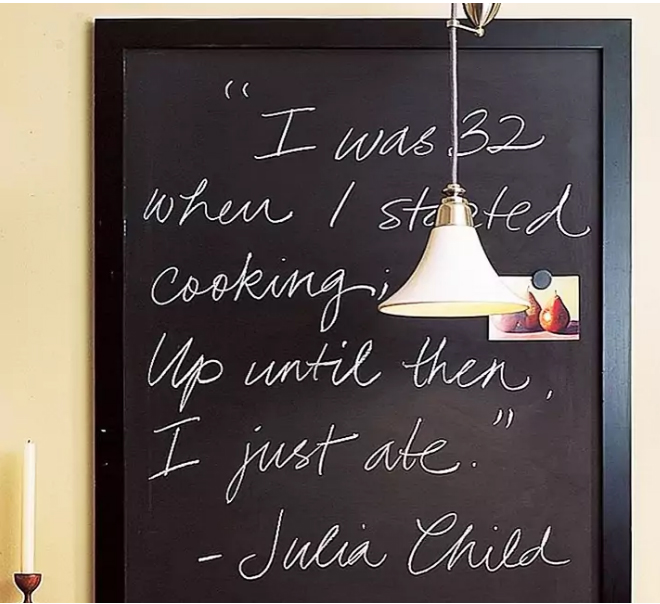 "I was 32
when I started
cooking;
Up until then,
I just ate."
- Julia Child